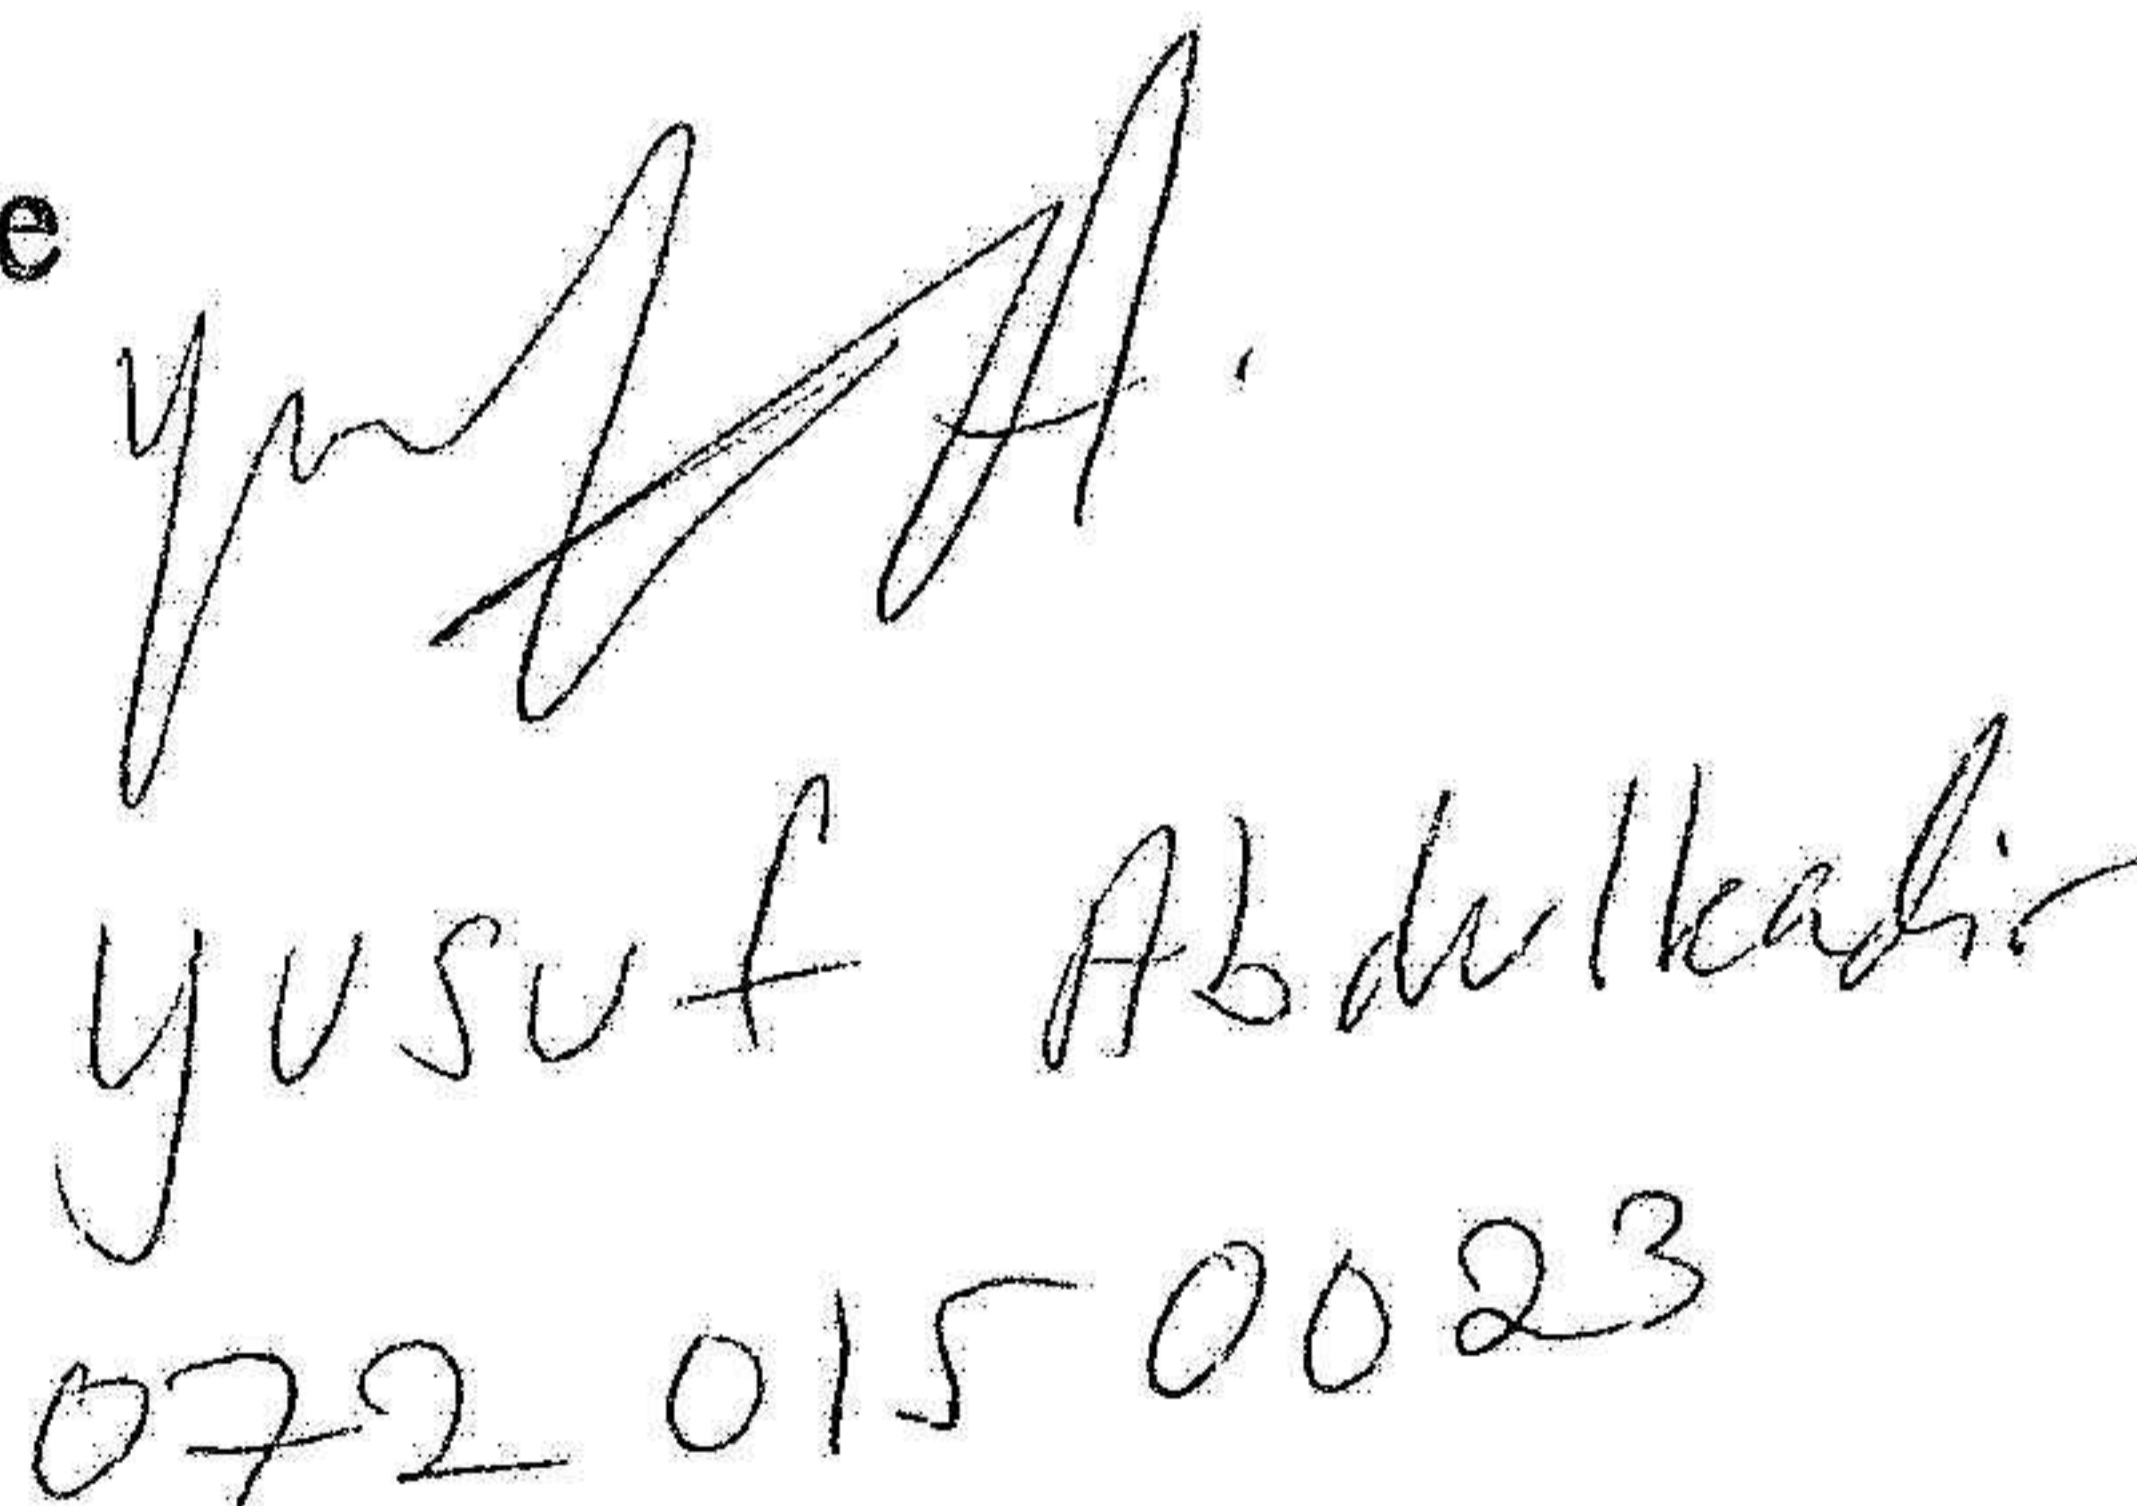 e
Yusuf A.
Yusuf Abdulkadir
072 015 0023